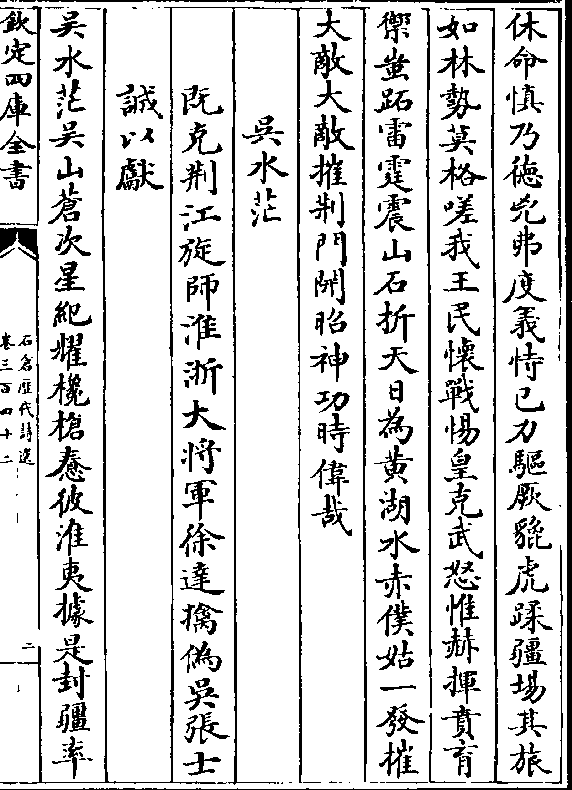 休命慎乃徳兇弗度義恃已刀驅厥貔虎蹂疆埸其旅
如林勢莫格嗟我王民懐戰惕皇克武怒惟赫揮賁育
禦蚩跖雷霆震山石折天日為黄湖水赤僕姑一發摧
大敵大敵摧荆門開昭神功時偉哉
吳水茫
既克荆江旋師淮浙大將軍徐達擒偽吳張士
誠以獻
吳水茫吳山蒼次星紀耀欃槍憃彼淮夷據是封疆率
欽定四庫全書
石倉歴代詩選
卷三百四十二
二